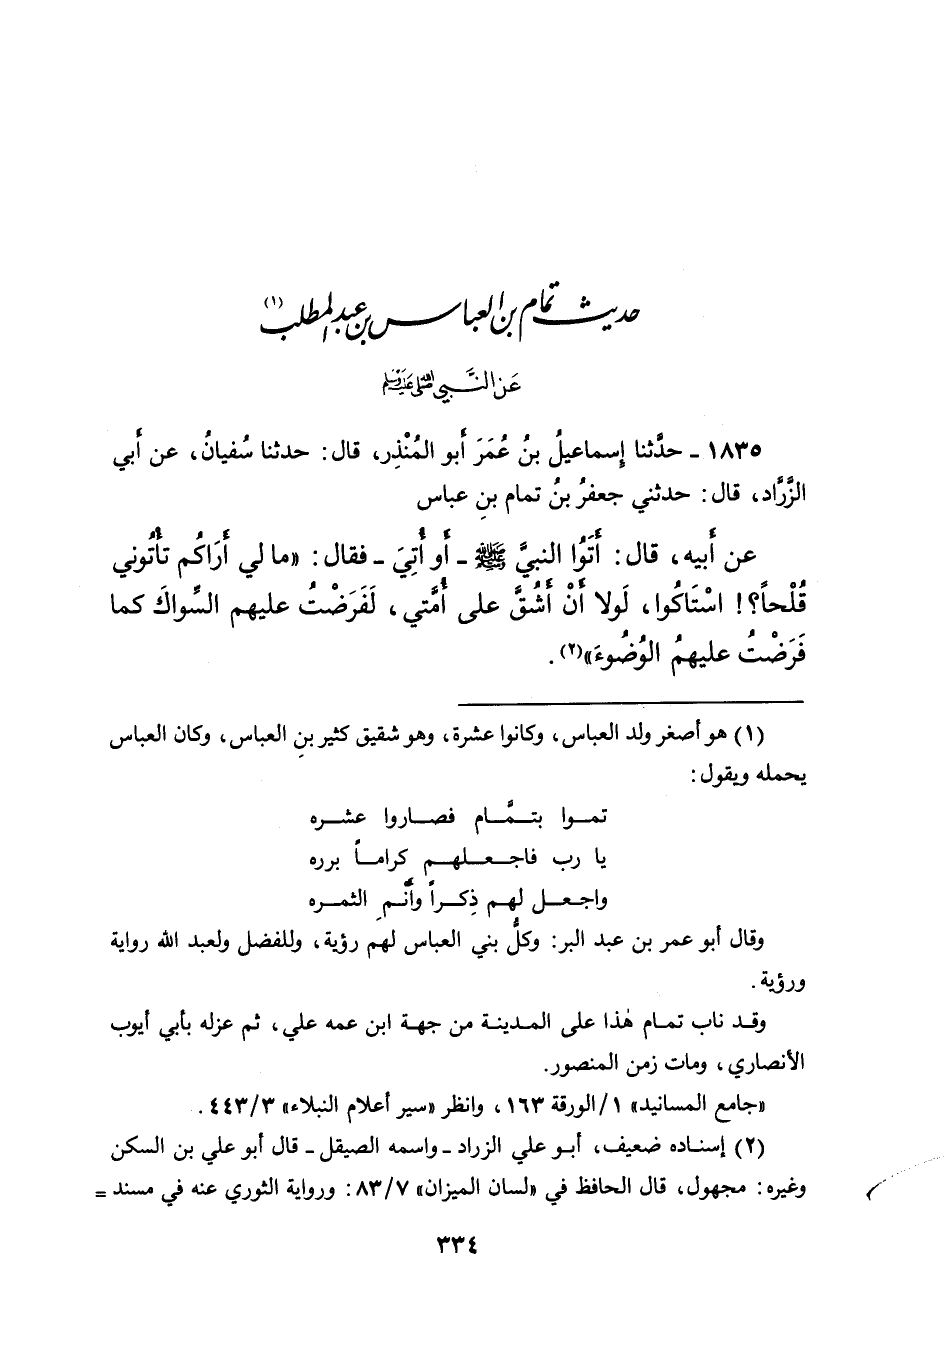 حديث تمام بن العباس بن عبد المطلب(١)
عَن النَّبي ﷺ
١٨٣٥ ـ حدَّثنا إسماعيلُ بنُ عُمَرَ أبو المُنْذِر، قال: حدثنا سُفيانُ، عن أبي
الزَّرَّاد، قال: حدثني جعفرُ بنُ تمام بنِ عباس
عن أَبيه، قال: أَتَوُا النبيَّ ﷺ ـ أَو أُتِيَ ـ فقال: «ما لي أَرَاكُم تأْتُوني
قُلْحاً؟! اسْتَاكُوا، لَولا أَنْ أَشُقَّ على أُمَّتي، لَفَرَضْتُ عليهم السِّواكَ كما
فَرَضْتُ عليهمُ الوُضُوءَ»(٢).
(١) هو أصغر ولد العباس، وكانوا عشرة، وهو شقيق كثير بنِ العباس، وكان العباس
يحمله ويقول:
تمــوا بتــمَّــام فصــاروا عشــره
يا رب فاجــعــلهــم كرامــاً برره
واجعــل لهـم ذِكــراً وأَنْـمِ الثمــره
وقال أبو عمر بن عبد البر: وكلُّ بني العباس لهم رؤية، وللفضل ولعبد الله رواية
ورؤية.
وقـد ناب تمـام هٰذا على المـدينـة من جهـة ابن عمه علي، ثم عزله بأبي أيوب
الأنصاري، ومات زمن المنصور.
«جامع المسانيد» ١/الورقة ١٦٣، وانظر «سير أعلام النبلاء» ٤٤٣/٣.
(٢) إسنـاده ضعيف، أبـو علي الزراد ـ واسمه الصيقل ـ قال أبو علي بن السكن
وغيره: مجهول، قال الحافظ في «لسان الميزان» ٨٣/٧: ورواية الثوري عنه في مسند =
٣٣٤